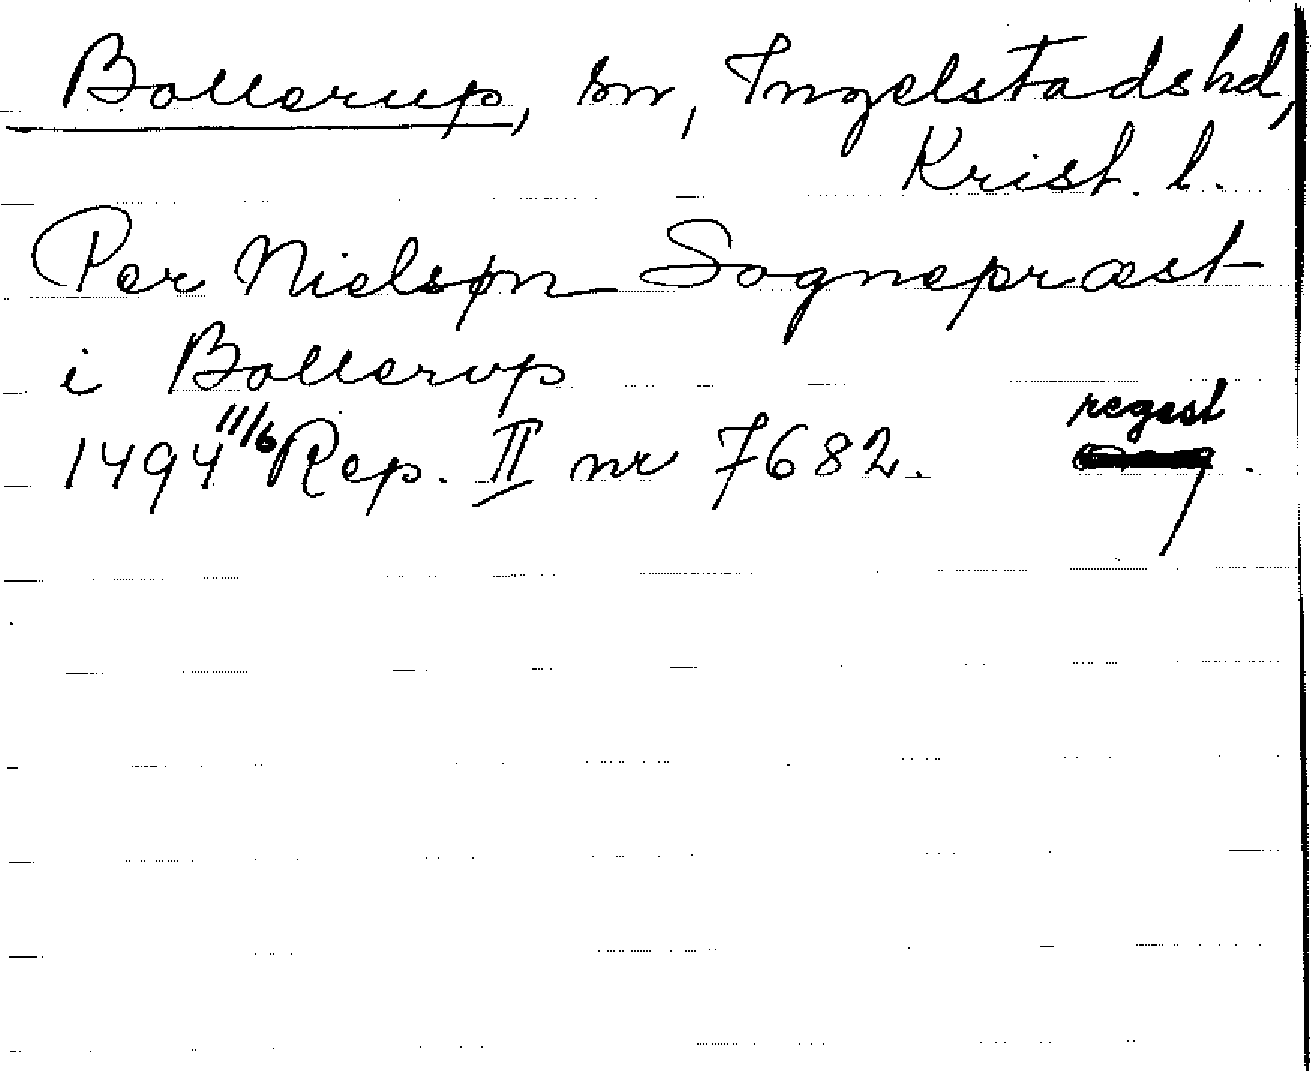 Bollerup, sn, Ingelstads hd,
Krist. l.
Per Nielsøn Sognepræst
i Bollerup
regest
1494 11/6 Rep. II nr 7682.